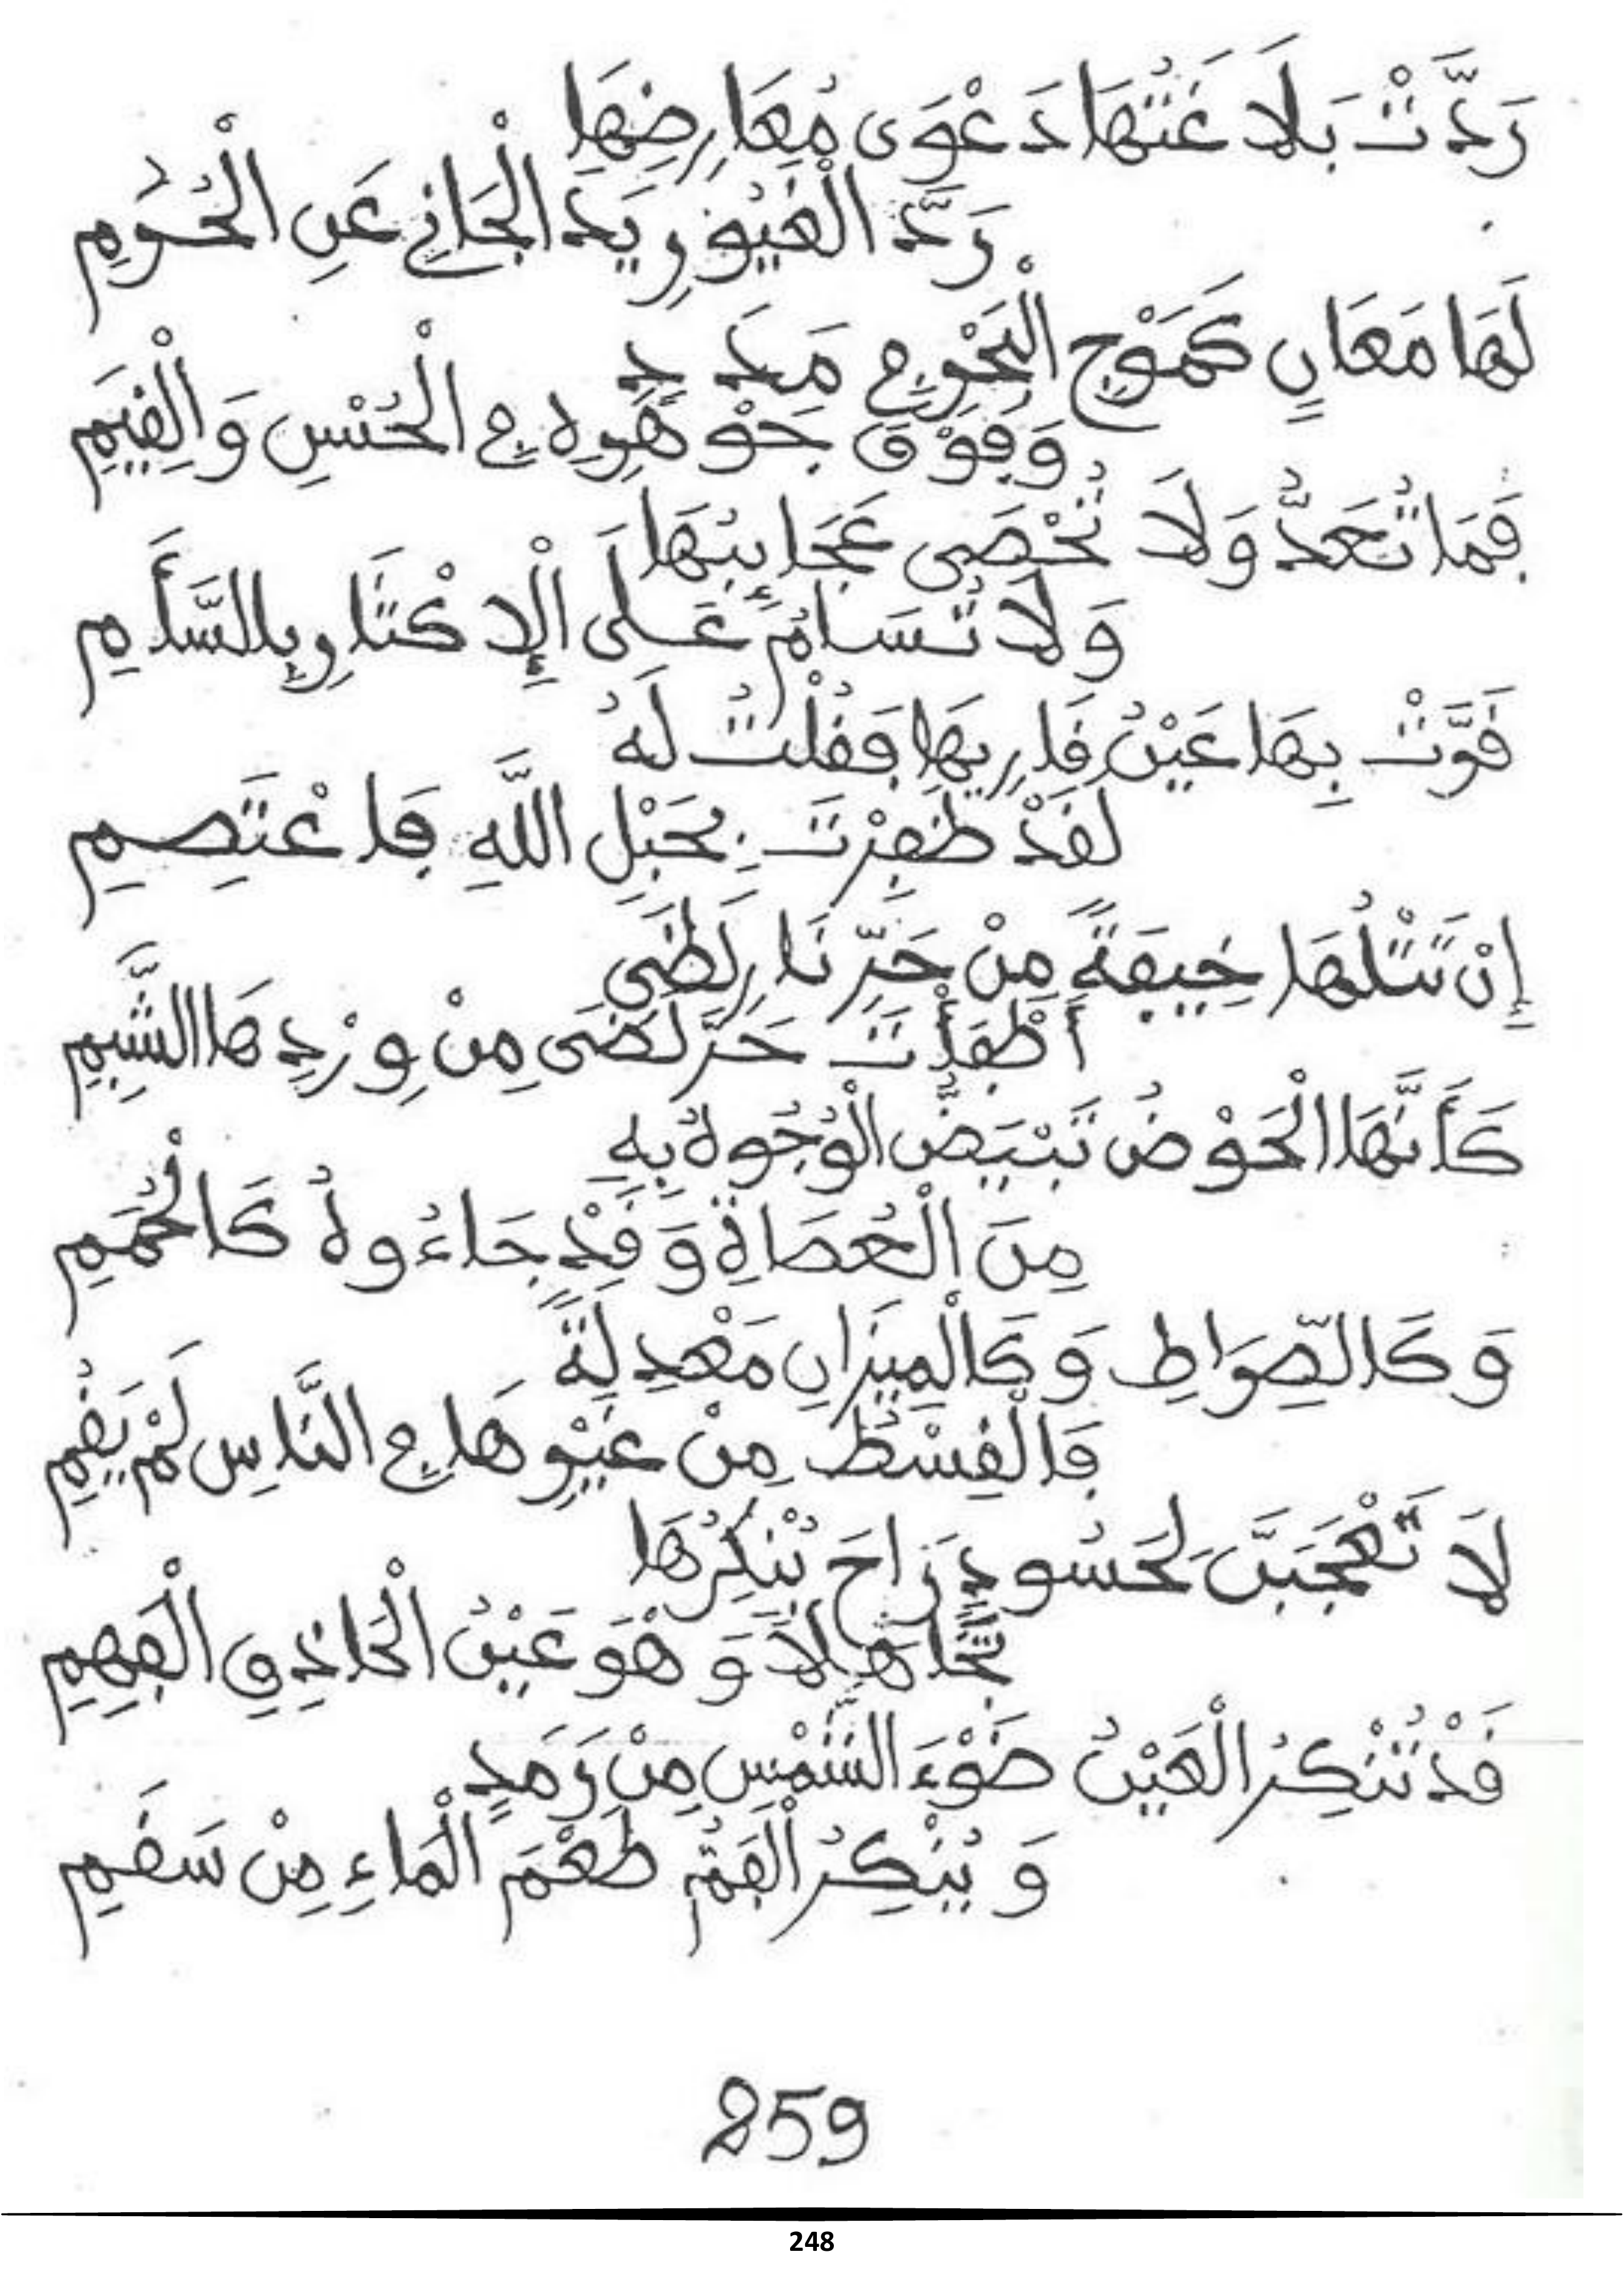 رَدَّتْ بَلَاغَتُهَا دَعْوَى مُعَارِضِهَا
رَدَّ الْغَيُورِ يَدَ الْجَانِي عَنِ الْحُرَمِ
لَهَا مَعَانٍ كَمَوْجِ الْبَحْرِ فِي مَدَدٍ
وَفَوْقَ جَوْهَرِهِ فِي الْحُسْنِ وَالْقِيَمِ
فَمَا تُعَدُّ وَلَا تُحْصَى عَجَائِبُهَا
وَلَا تُسَامُ عَلَى الْإِكْثَارِ بِالسَّأَمِ
قَرَّتْ بِهَا عَيْنُ قَارِيهَا فَقُلْتُ لَهُ
لَقَدْ ظَفِرْتَ بِحَبْلِ اللَّهِ فَاعْتَصِمِ
إِنْ تَتْلُهَا خِيفَةً مِنْ حَرِّ نَارِ لَظَى
أَطْفَأْتَ حَرَّ لَظَى مِنْ وِرْدِهَا الشَّبِمِ
كَأَنَّهَا الْحَوْضُ تَبْيَضُّ الْوُجُوهُ بِهِ
مِنَ الْعُصَاةِ وَقَدْ جَاءُوهُ كَالْحُمَمِ
وَكَالصِّرَاطِ وَكَالْمِيزَانِ مَعْدِلَةً
فَالْقِسْطُ مِنْ غَيْرِهَا فِي النَّاسِ لَمْ يَقُمِ
لَا تَعْجَبَنْ لِحَسُودٍ رَاحَ يُنْكِرُهَا
تَجَاهُلًا وَهْوَ عَيْنُ الْحَاذِقِ الْفَهِمِ
قَدْ تُنْكِرُ الْعَيْنُ ضَوْءَ الشَّمْسِ مِنْ رَمَدٍ
وَيُنْكِرُ الْفَمُ طَعْمَ الْمَاءِ مِنْ سَقَمِ
259
248